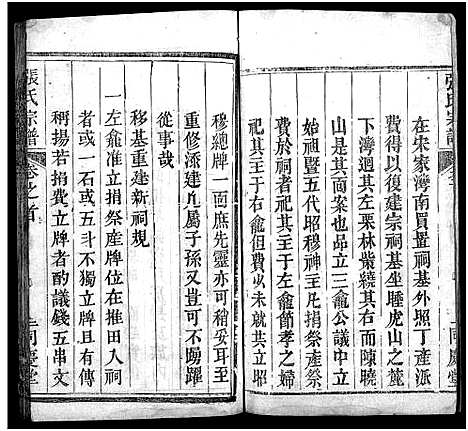 張氏宗譜
同慶堂
在宋家灣南買置祠基外照丁產派
費得以復建宗祠基坐睡虎山之麓
下灣迴其左栗林紫繞其右而陳曉
山是其面案也昂立三龕公議中龕
始祖暨五代昭穆神主凡捐祭產祭
費於祠者祀其於左龕節孝之婦
祀於右龕
穆總牌一面庶先靈亦可稍妥耳至
重修添建凡屬子孫又豈可不踴躍
從事哉
移基重建新祠規
一左龕准立捐祭產牌位在推田人祠
或一石或五斗不獨立牌且有傳
稱揚若捐費立牌者酌議錢五串文
張氏宗譜
卷之首
同慶堂